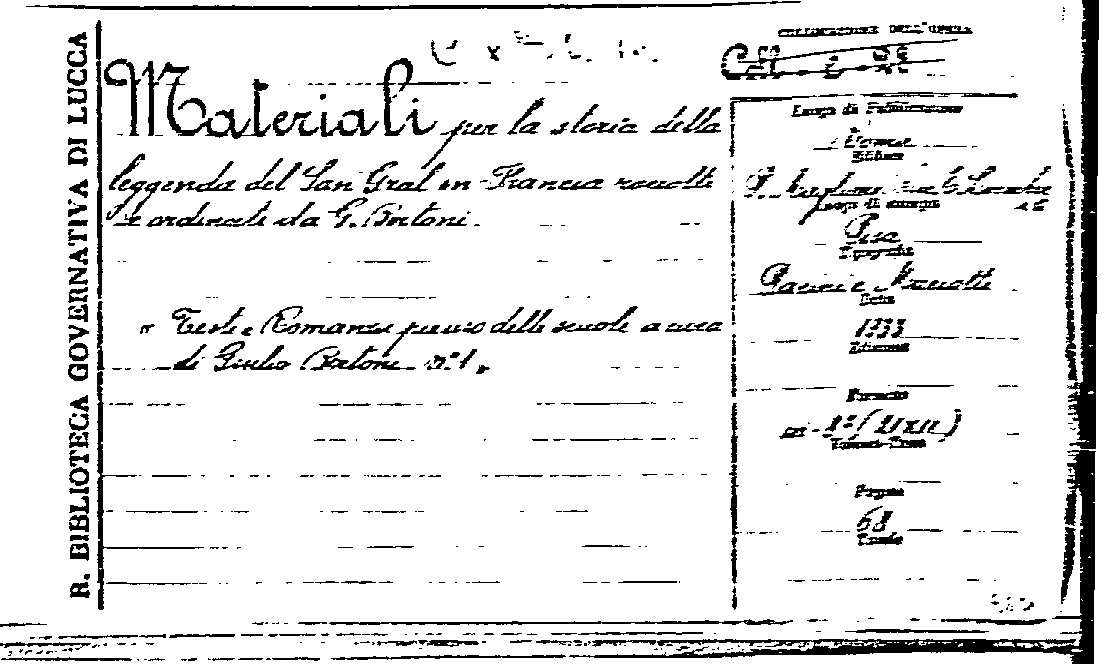 R. BIBLIOTECA GOVERNATIVA DI LUCCA
Materiali per la storia della
leggenda del San Gral in Francia raccolti
e ordinati da G. Bertoni.
" Testi Romanzi per uso delle scuole a cura
di Giulio Bertoni n° 1 "
COLLOCAZIONE DELL'OPERA
Luogo di Pubblicazione
Roma
Editore
P. Maglione
Luogo di stampa
Pisa
Tipografia
Pacini e Mariotti
Data
1933
Edizione
Formato
in - 8°
Pagine
68